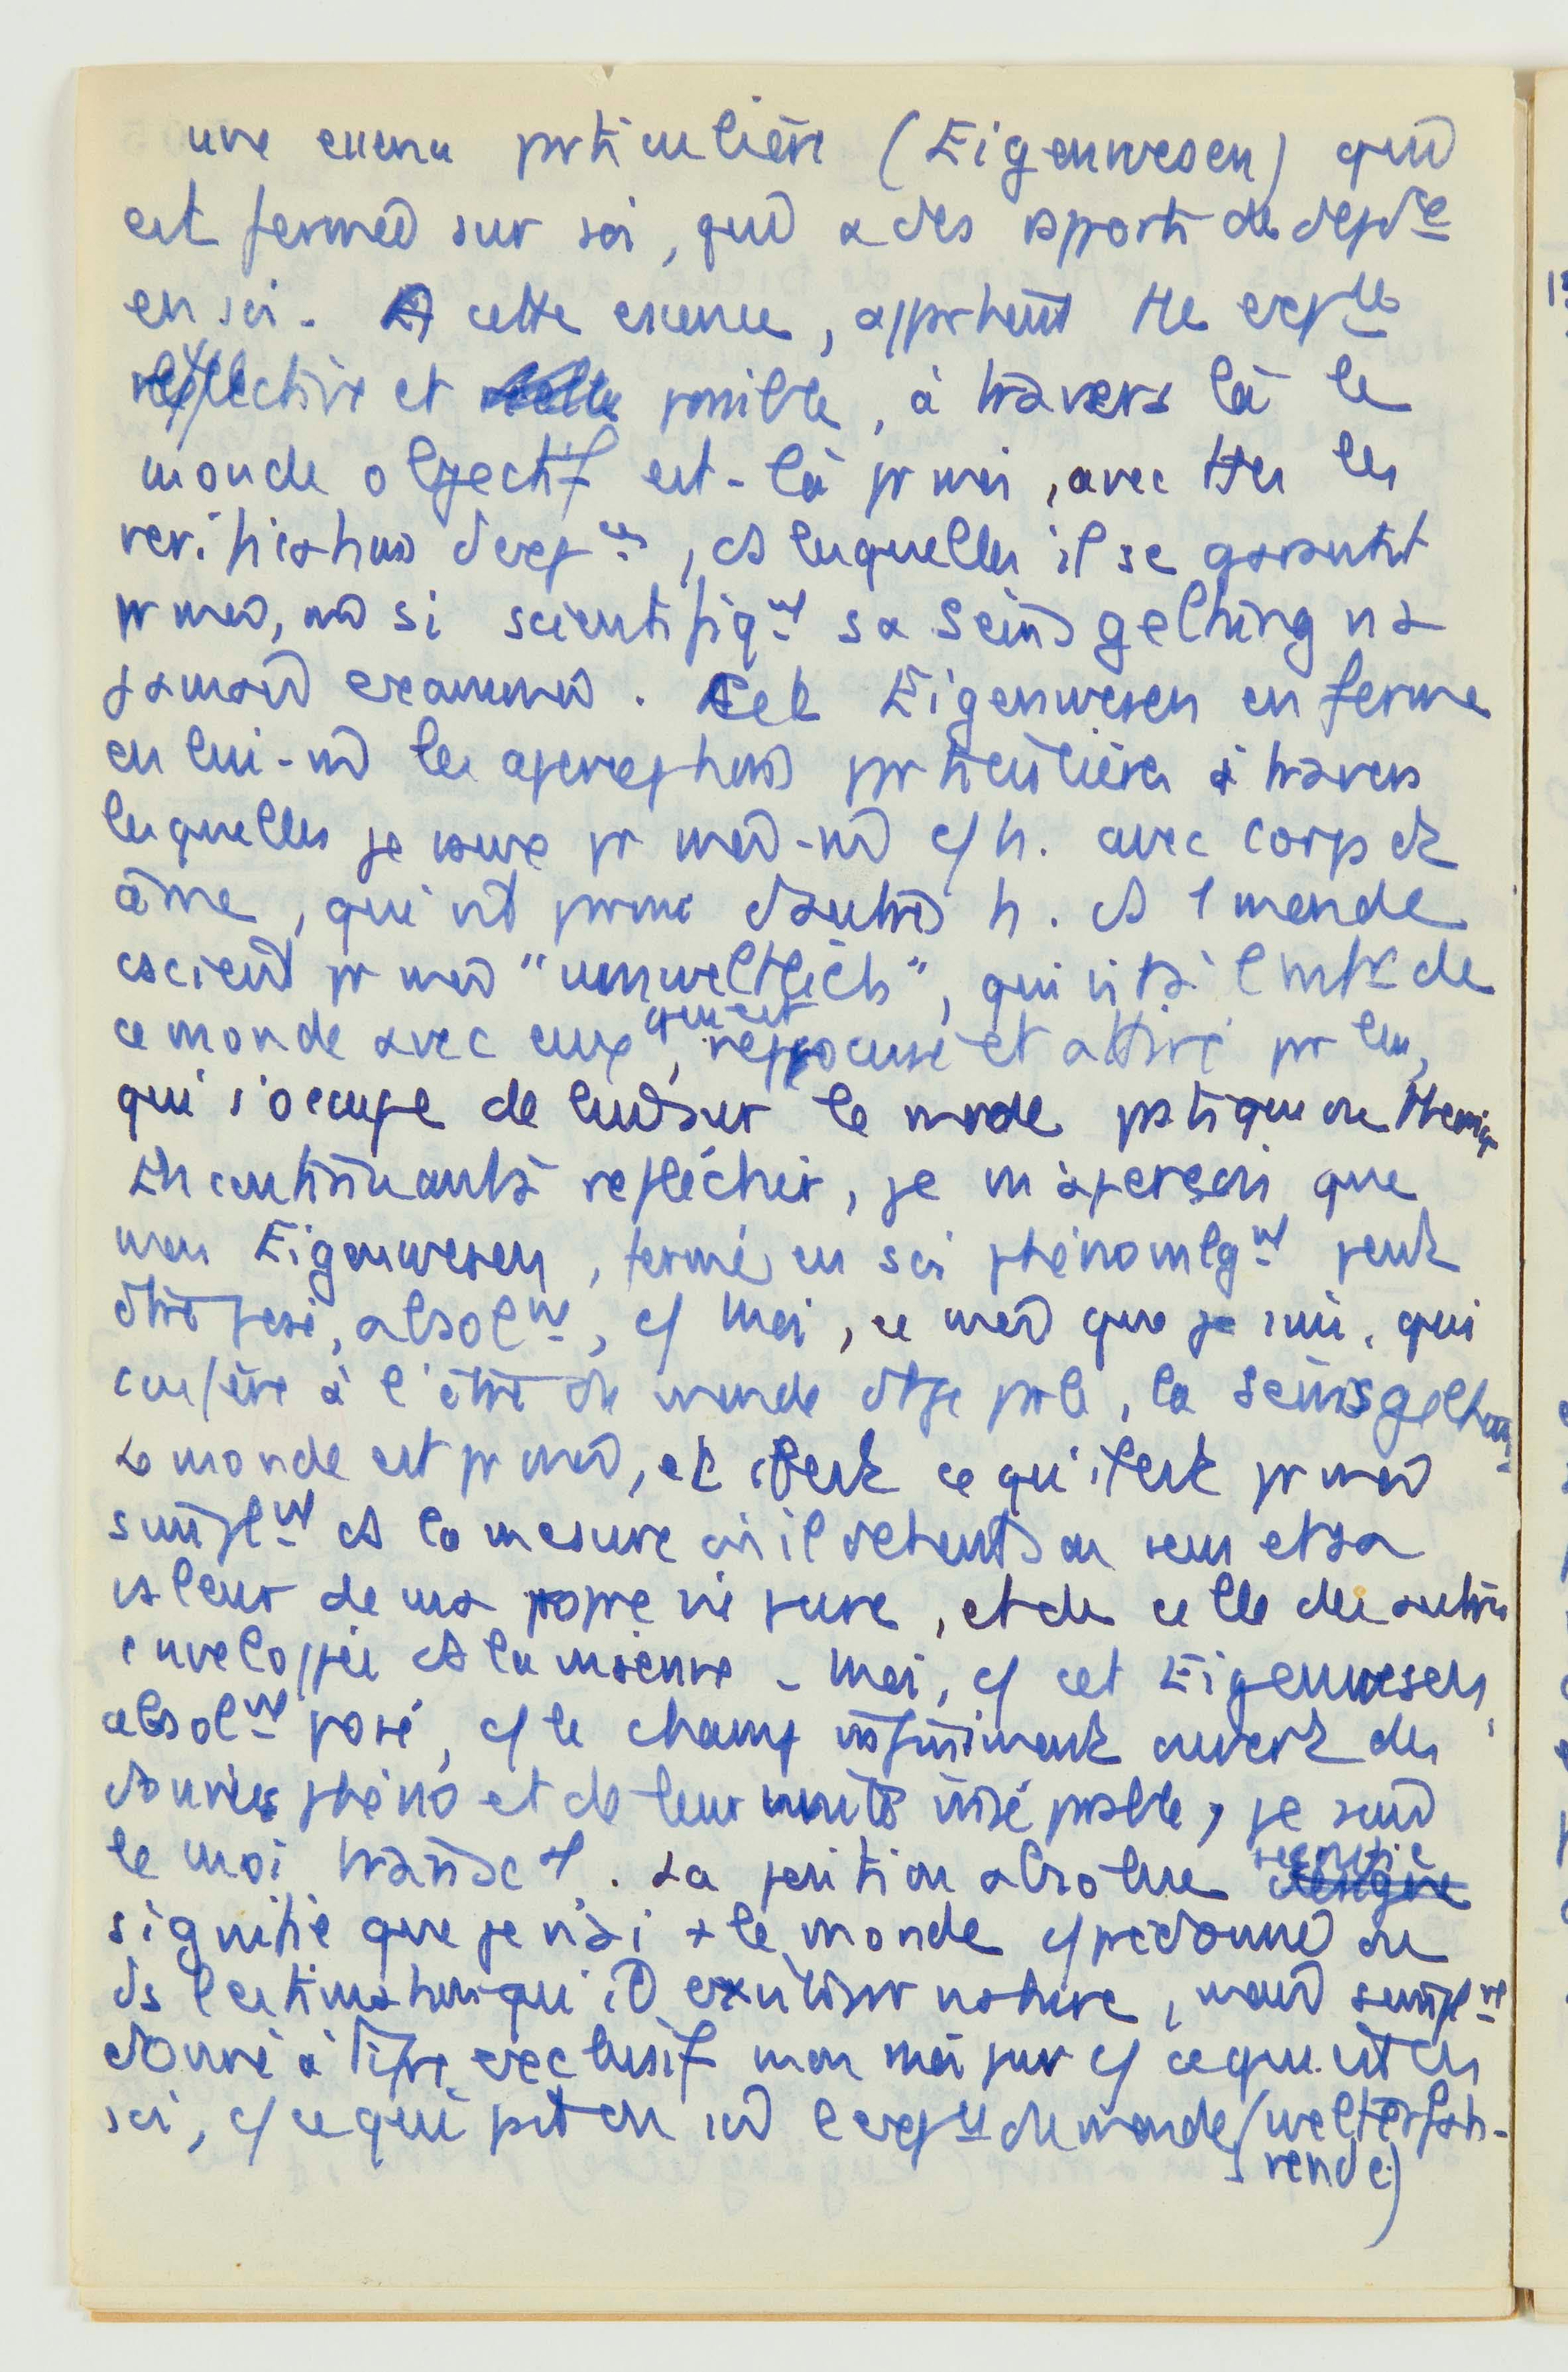 une essence particulière (Eigenwesen) qui
est fermé sur soi, qui a des rapports de dépce
en soi. A cette essence, appartient tte expce
réflective et possible, à travers là le
monde objectif est-là pr moi, avec ttes les
verifications d'expces, ds lesquelles il se garantit
pr moi, m si scientifiqt sa Seinsgeltung n'a
jamais examiné. Cet Eigenwesen enferme
en lui-m les aperceptions particulières à travers
lesquelles je vaux pr moi-m c/ h. avec corps et
âme, qui vit parmi d'autres h. ds 1 monde
cscient pr moi "umweltlich", qui vit à l'intr de
ce monde avec eux, qui est préoccupé et attiré par lui,
qui s'occupe de lui sur le mode pratique ou théoriq
En continuant à réfléchir, je m'aperçois que
mon Eigenwesen, fermé en soi phénomlgt peut
être posé, absolt, c/ moi, ce moi que je suis, qui
confère à l'être du monde dt je parle, la Seinsgeltung
Le monde est pr moi, et il est ce qu'il est pr moi
simplt ds la mesure où il détient son sens et sa
valeur de ma propre vie pure, et de celle des autres
enveloppée ds la mienne - moi, c/ cet Eigenwesen,
absolt posé, c/ le champ infiniment ouvert des
données phéno et de leur unité inséparable, je suis
le moi transctl. La position absolue
signifie que je n'ai + le monde c/ prédonné ou
ds l'estimation qui va exister nature, mais simplt
donné à titre exclusif mon moi pur c/ ce qui est en
soi, c/ ce qui est en soi l'expce du monde (welterfah-
rende)